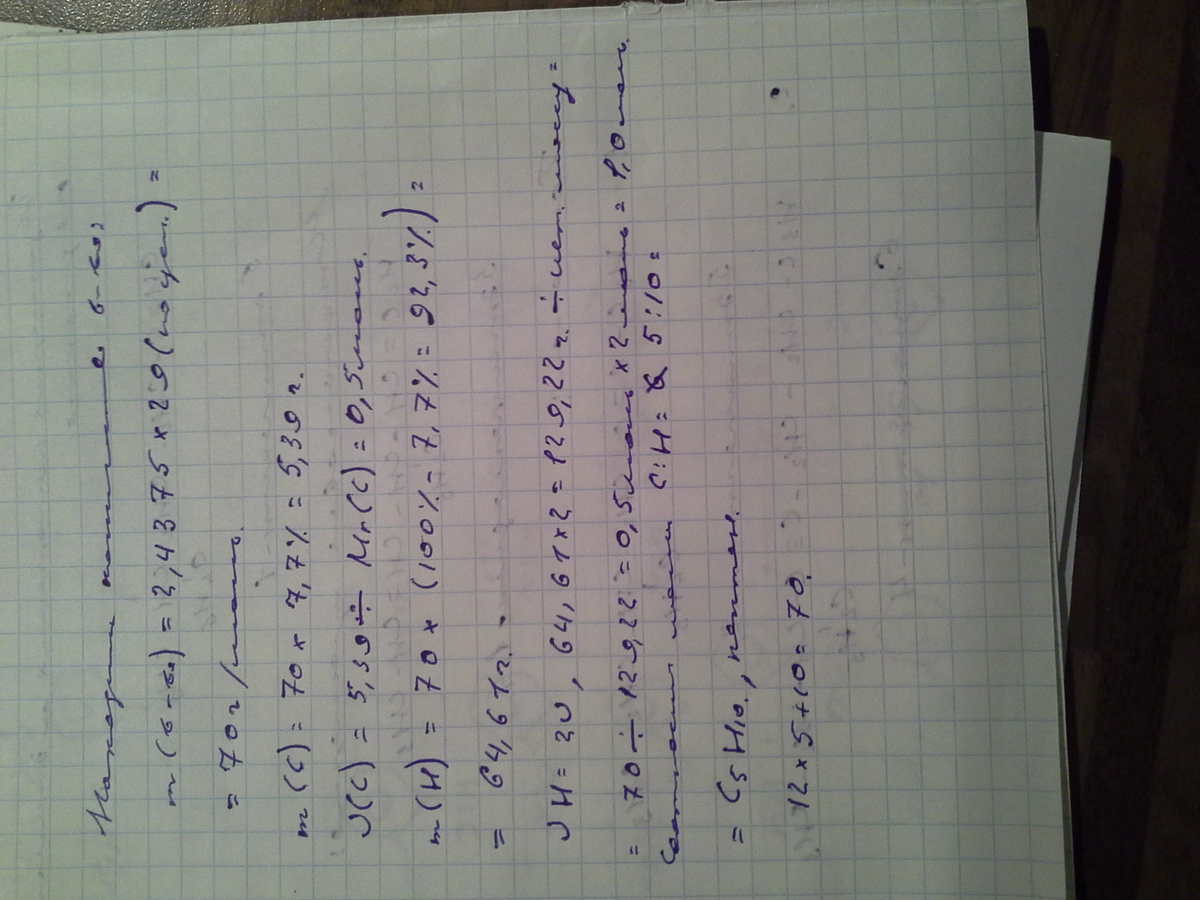 Находим в-ва:
m(в-ва) = 2,4375 x 29 (по усл.) =
= 70 г/моль.
m(C) = 70 x 7,7% = 5,39 г.
ν(C) = 5,39 ÷ Mr(C) = 0,5 моль.
m(H) = 70 x (100% - 7,7% = 92,3%) =
= 64,61 г.
νH = 2ν, 64,61 x 2 = 129,22 г. ÷ =
= 70 ÷ 129,22 = 0,5 моль x 2 моль = 1,0 моль.
Соотносим моли C:H = 5:10 =
= C5H10, пентен.
12 x 5 + 10 = 70.